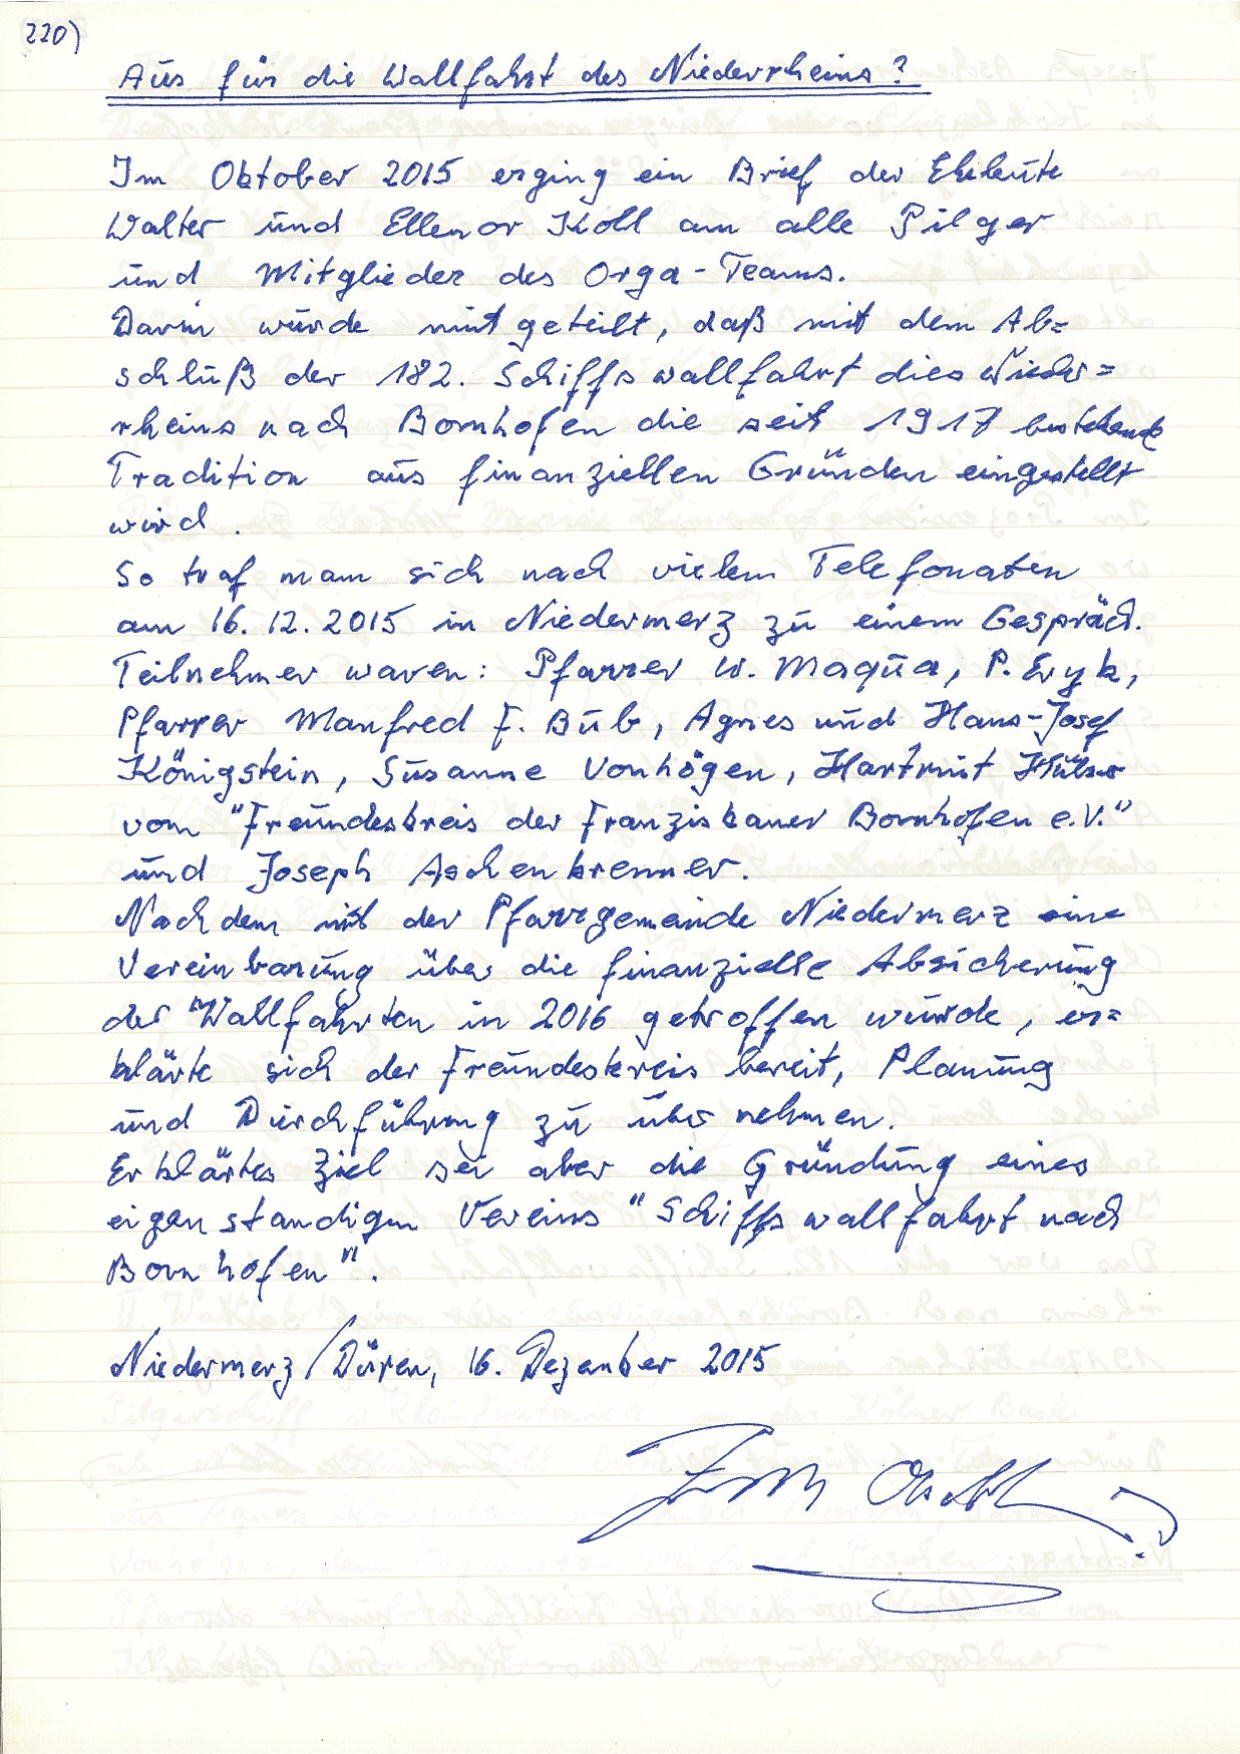 220)
Aus für die Wallfahrt des Niederrheins?
Im Oktober 2015 erging ein Brief der Eheleute
Walter und Ellenor Koll an alle Pilger
und Mitglieder des Orga-Teams.
Darin wurde mitgeteilt, daß mit dem Ab=
schluß der 182. Schiffswallfahrt dies Nieder=
rheins nach Bornhofen die seit 1917 bestehende
Tradition aus finanziellen Gründen eingestellt
wird.
So traf man sich nach vielem Telefonaten
am 16.12.2015 in Niedermerz zu einem Gespräch.
Teilnehmer waren: Pfarrer W. Maqua, P. Eryk,
Pfarrer Manfred F. Bub, Agnes und Hans-Josef
Königstein, Susanne Vonhögen, Hartmut Hülser
vom "Freundeskreis der Franziskaner Bornhofen e.V."
und Joseph Aschenbrenner.
Nachdem mit der Pfarrgemeinde Niedermerz eine
Vereinbarung über die finanzielle Absicherung
der Wallfahrten in 2016 getroffen wurde, er=
klärte sich der Freundeskreis bereit, Planung
und Durchführung zu übernehmen.
Erklärtes Ziel sei aber die Gründung eines
eigenständigen Vereins "Schiffswallfahrt nach
Bornhofen".
Niedermerz/Düren, 16. Dezember 2015